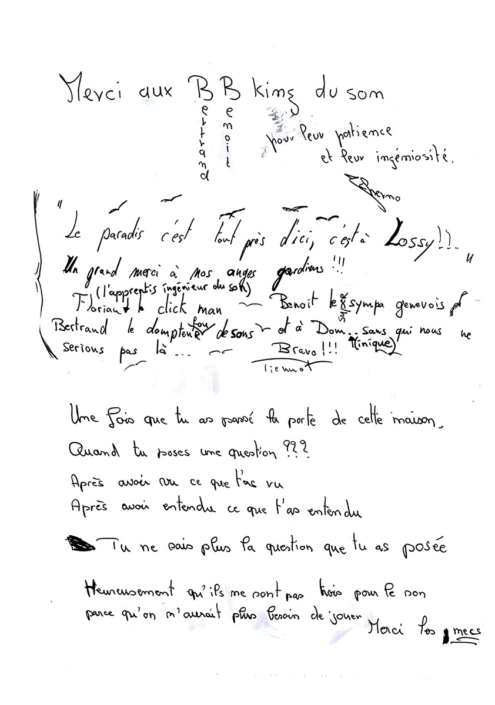 Merci aux BB king du son
Bertrand
Benoit
pour leur patience
et leur ingéniosité.
"Le paradis c'est tout près d'ici, c'est à Lossy!!.."
Un grand merci à nos anges gardiens !!!
(l'apprentis ingénieur du son)
Florian le click man ~ Benoit le sympa genevois
Bertrand le dompteur fou de sons ~ et à Dom... (inique) sans qui nous ne
serions pas là ... ~ Bravo!!!
Une fois que tu as passé la porte de cette maison,
Quand tu poses une question ???
Après avoir vu ce que t'as vu
Après avoir entendu ce que t'as entendu
Tu ne sais plus la question que tu as posée
Heureusement qu'ils ne sont pas trois pour le son
parce qu'on n'aurait plus besoin de jouer
Merci les mecs